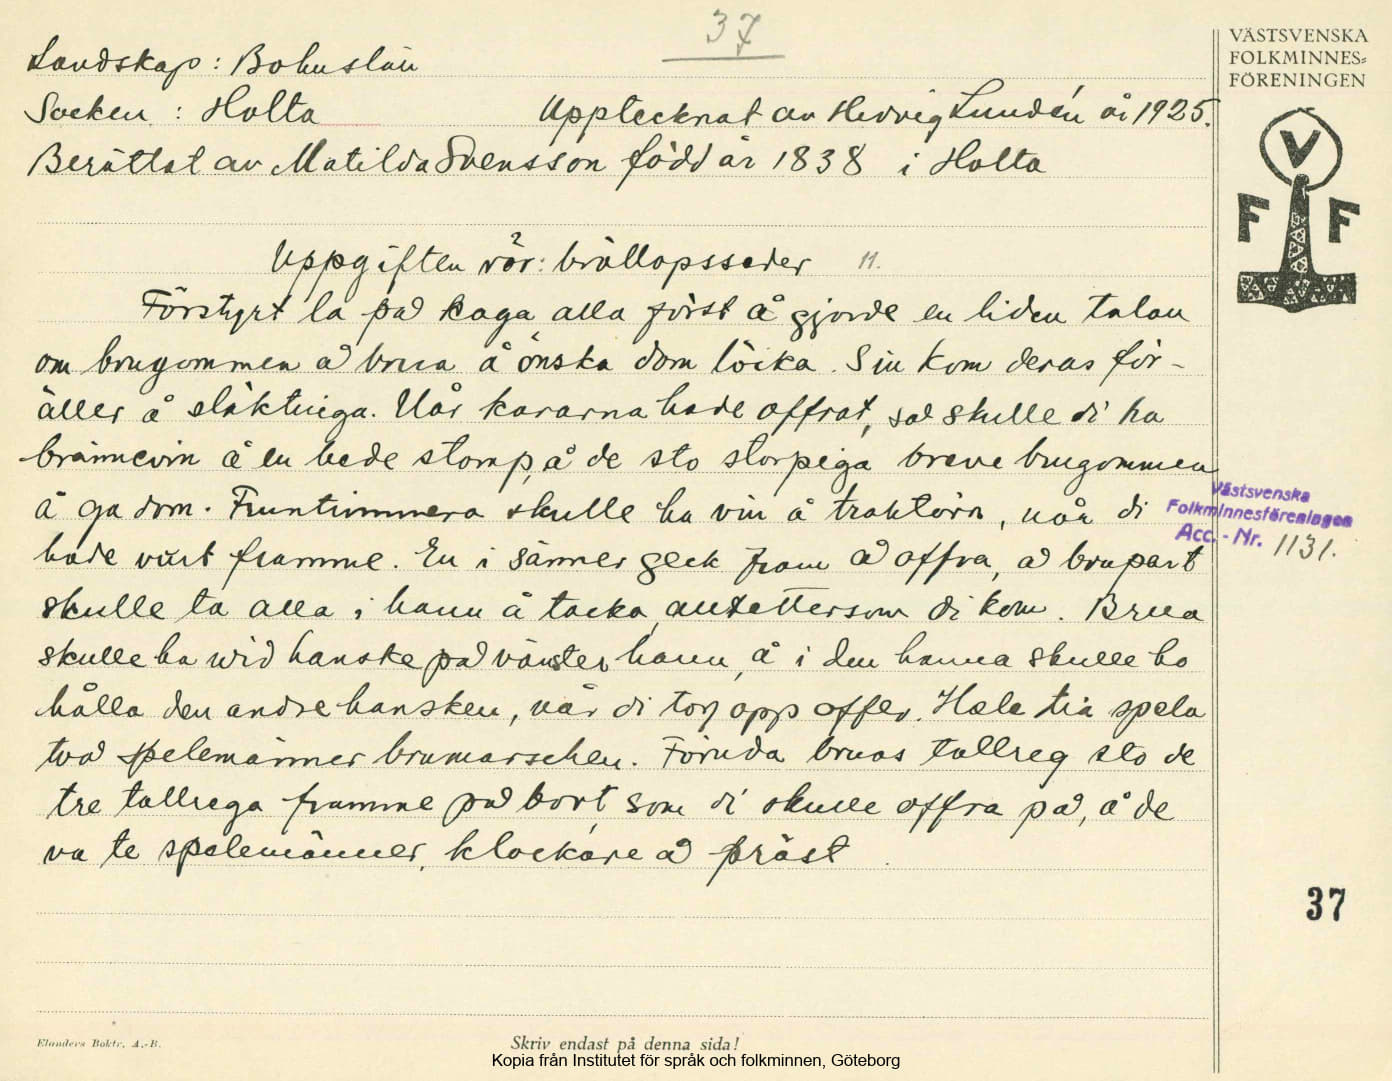 37
VÄSTSVENSKA
FOLKMINNES-
FÖRENINGEN
V
F F
Landskap: Bohuslän
Socken : Holta Upptecknat av Hedvig Lundén år 1925.
Berättat av Matilda Svensson född år 1838 i Holta
Uppgiften rör: bröllopsseder 11.
Förstyrt la på kaga alla först å gjorde en liden talan
om brugommen å brua å önska dom löcka. Sin kom deras för-
äller å släktinga. Når kararna hade offrat, så skulle di ha
brännevin å en bede stomp, å de sto storpiga breve brugommen
å ga dom. Fruntimmera skulle ha vin å traktörn, når di
hade vurt framme. En i sänner geck fram å offra, å brupart
skulle ta alla i hann å tacka, antettersom di kom. Brua
skulle ha wid hanske på vänster hann, å i den hanna skulle ho
hålla den andre hansken, når di tog opp offer. Hela tia spela
två spelemänner brumarschen. Föruda bruas tallreg sto de
tre tallrega framme på bort, som di skulle offra på, å de
va te spelemänner, klockare å präst
Västsvenska
Folkminnesföreningen
Acc. - Nr. 1131.
37
Elanders Boktr. A.-B.
Skriv endast på denna sida!
Kopia från Institutet för språk och folkminnen, Göteborg